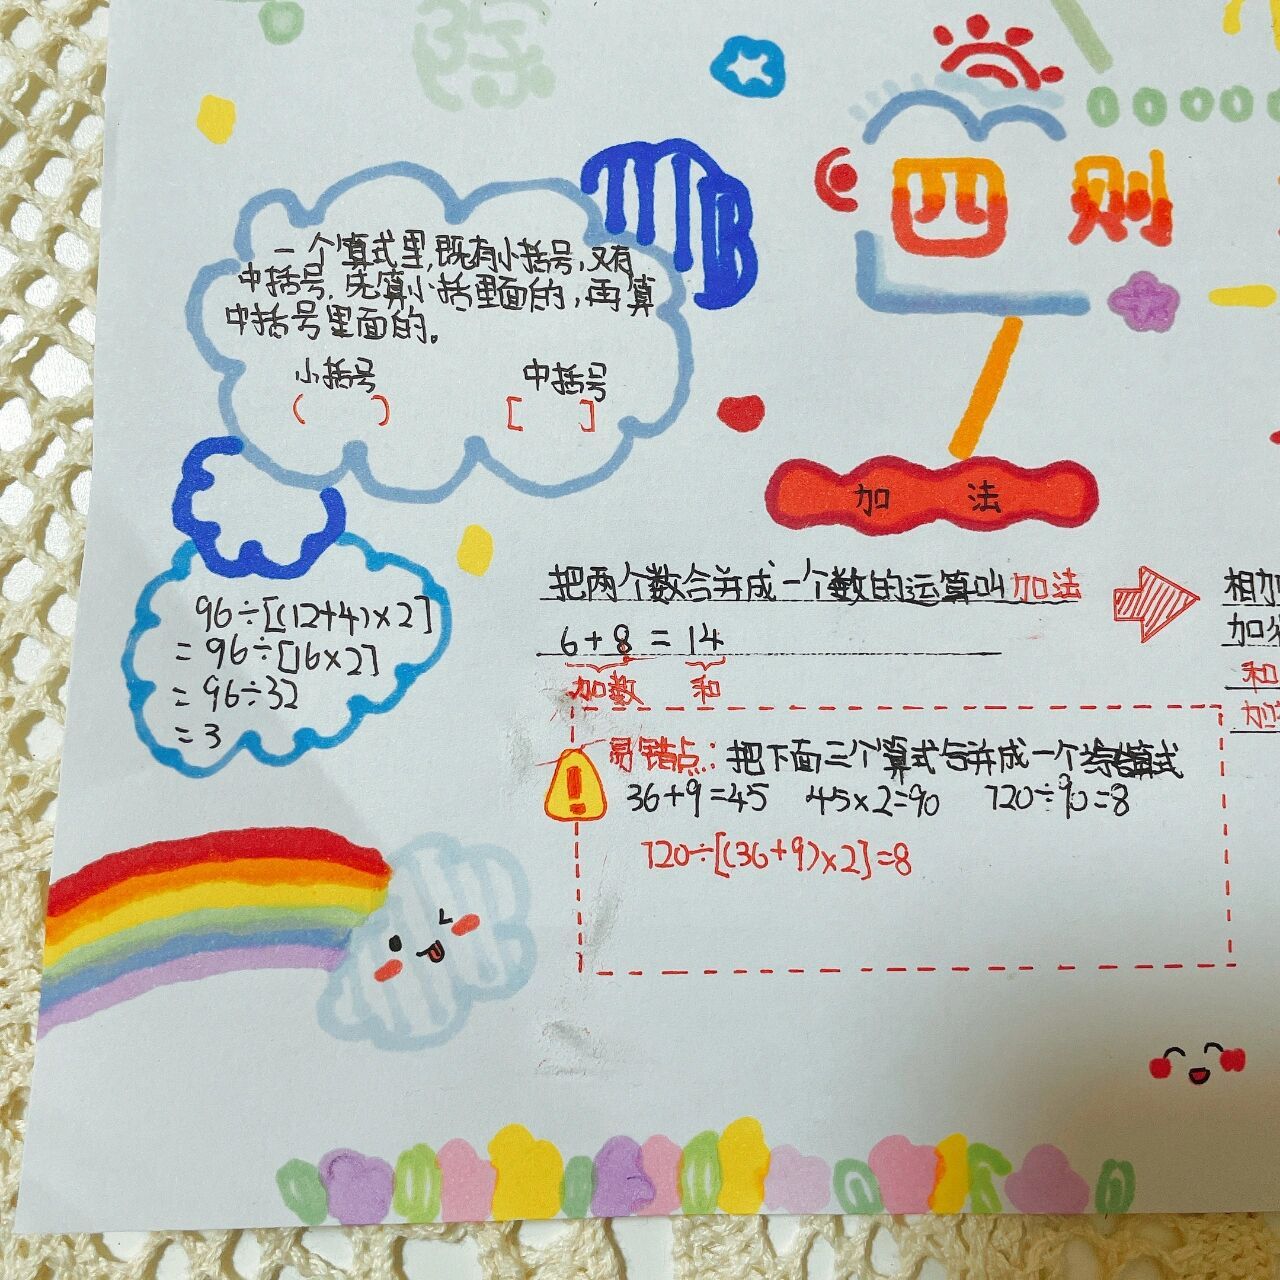 四则
一个算式里,既有小括号,又有
中括号,先算小括里面的,再算
中括号里面的。
小括号 中括号
( ) [ ]
96÷[(12+4)×2]
=96÷[16×2]
=96÷32
=3
加法
把两个数合并成一个数的运算叫加法
6+8=14
加数 和
相加
加
和
加
易错点:把下面三个算式合并成一个综合算式
36+9=45 45×2=90 720÷90=8
720÷[(36+9)×2]=8